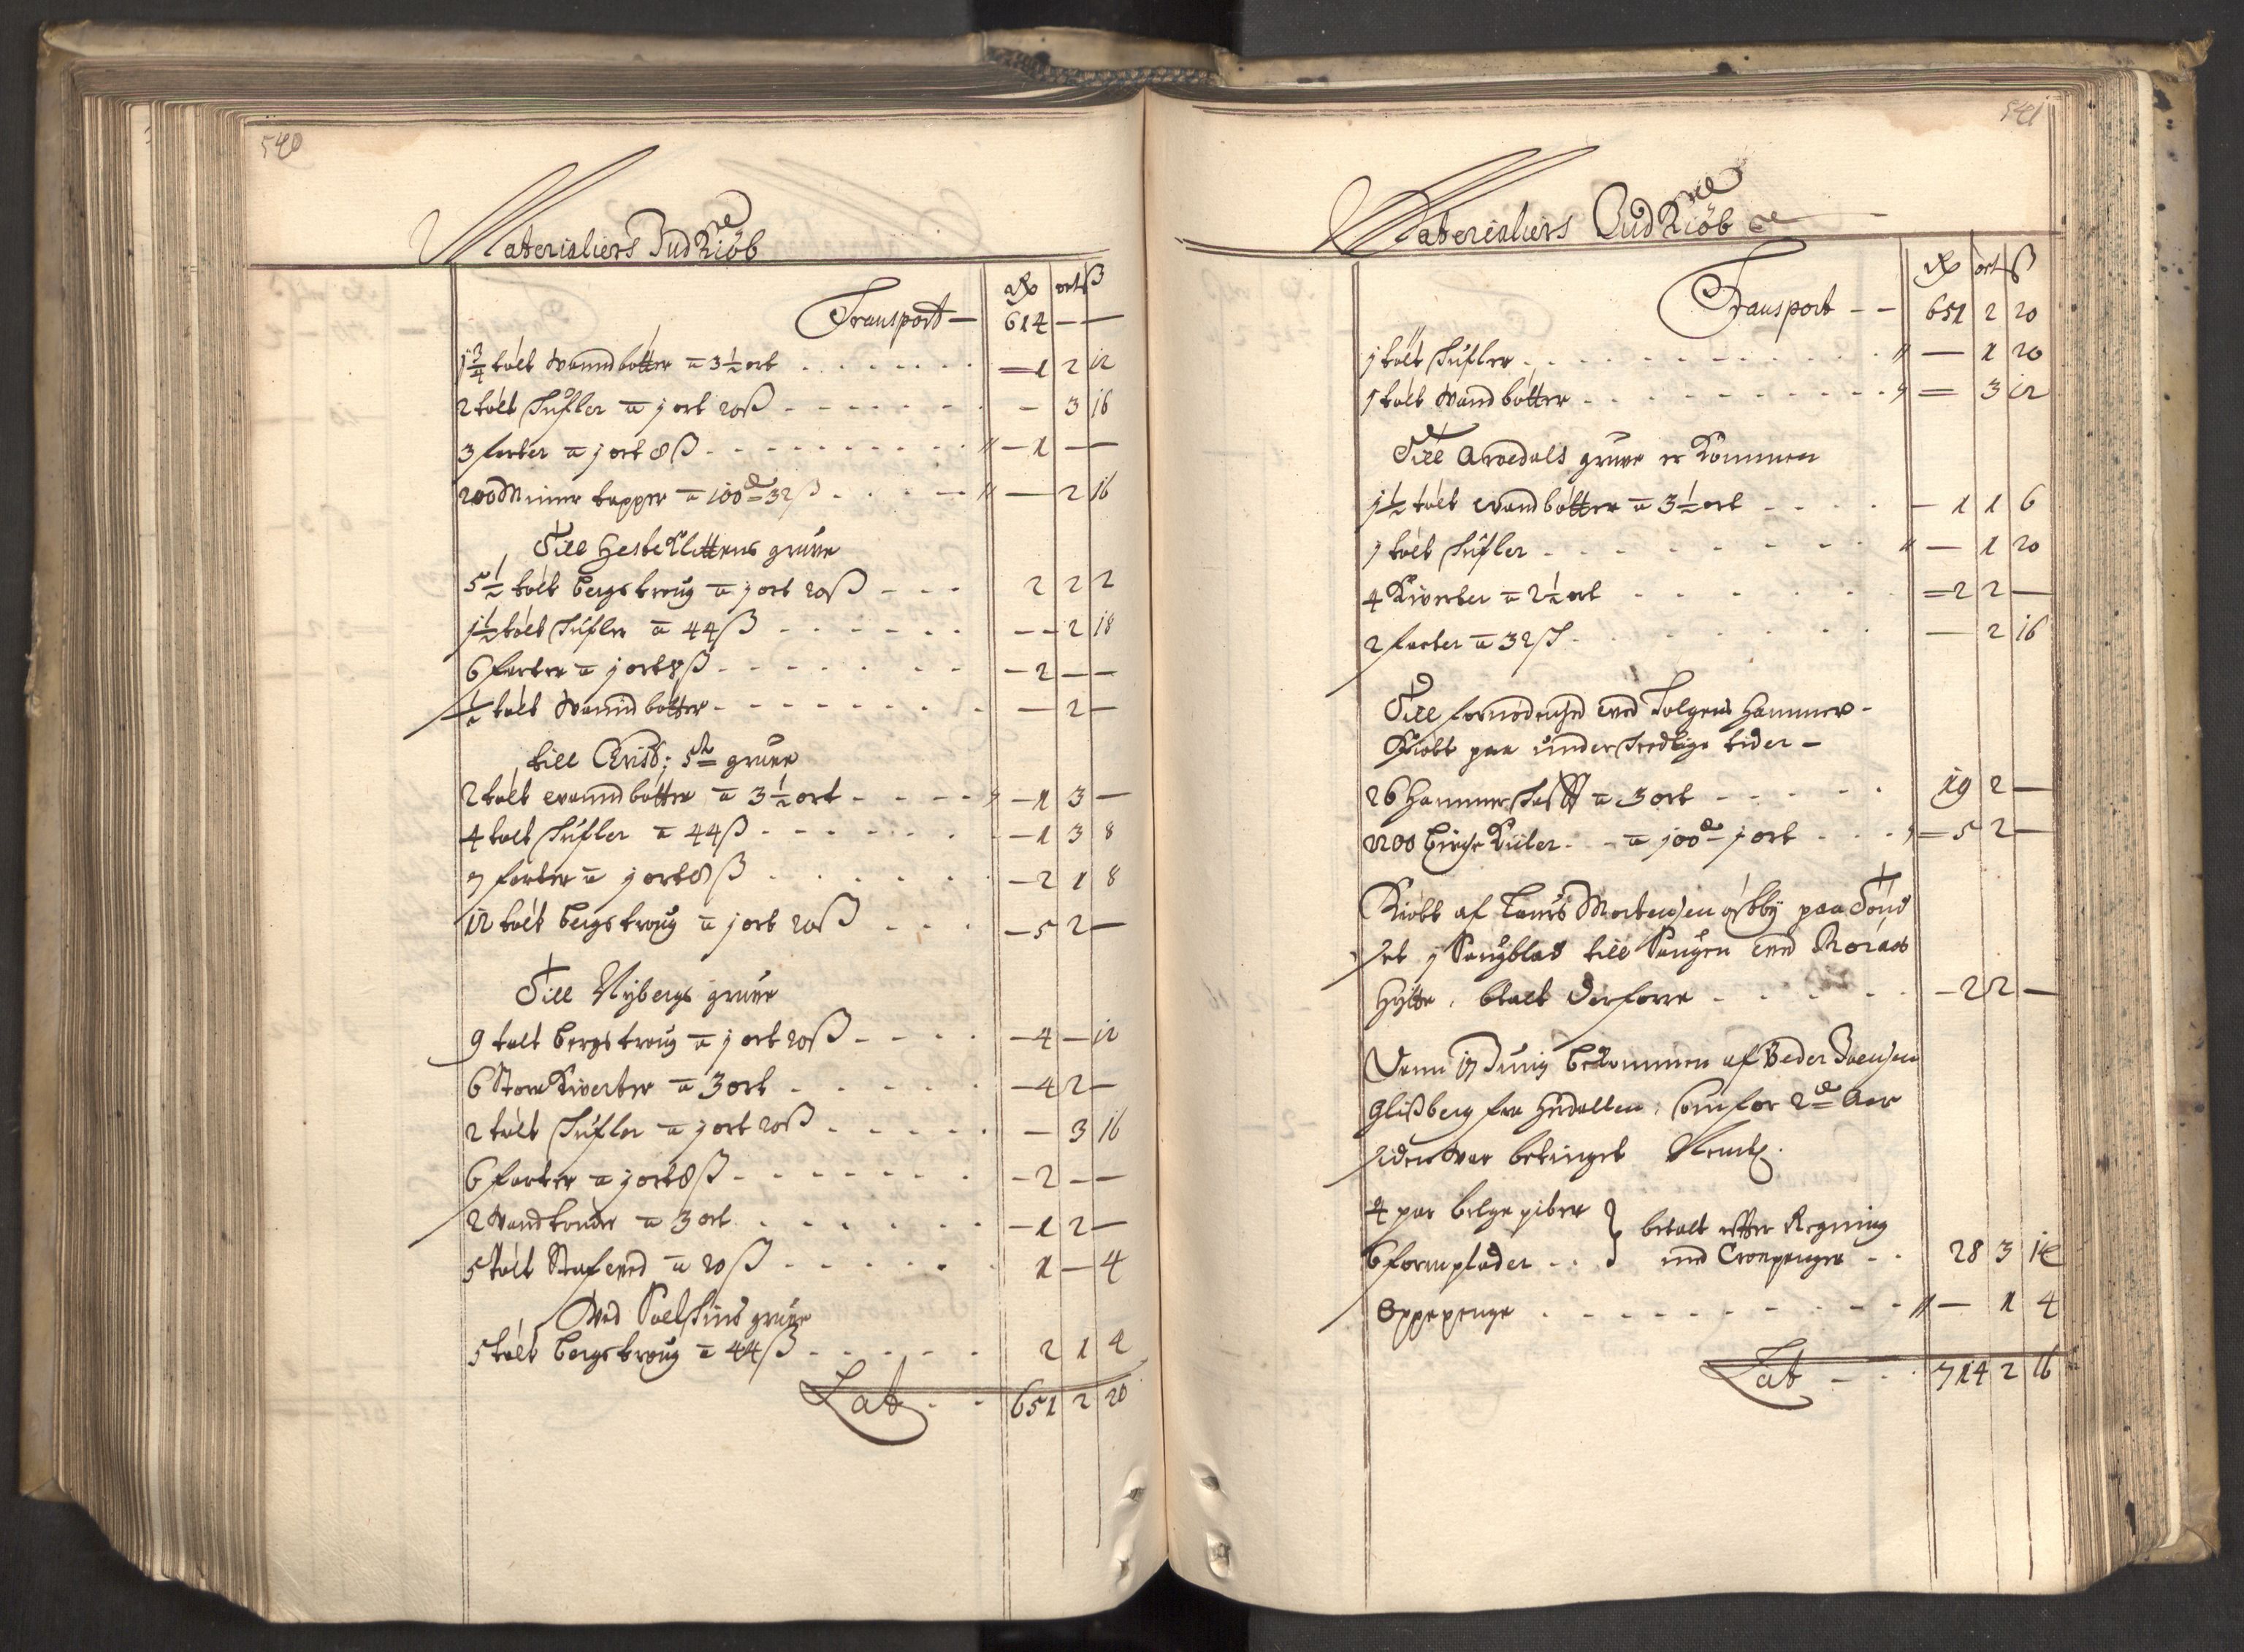 540
Materialiers Indkiøb
Rdr ort ß
Transport — 614 — —
1 3/4 tølt Wannd bøtter a 3 1/2 ort — 1 2 12
2 tølt Skufler a j ort 20 ß — 3 16
3 farter a j ort 8 ß — 1 —
200 Miner tapper a 100de 32 ß — 2 16
Till Hesteklettens gruve
5 1/2 tølt bergs troug a j ort 20 ß 2 2 2
1 1/2 tølt Skufler a 44 ß — 2 18
6 farter a j ort 8 ß — 2 — —
1/2 tølt Wannd bøtter — 2 —
till Christ: 5ti gruve
2 tølt wannd bøtter a 3 1/2 ort — 1 3 —
4 tølt Skufler a 44 ß — 1 3 8
7 farter a j ort 8 ß — 2 1 8
12 tølt bergs troug a j ort 20 ß — 5 2 —
Till Nybergs gruve
9 tølt bergs troug a j ort 20 ß — 4 — 12
6 Store Kiverter a 3 ort — 4 2 —
2 tølt Skufler a j ort 20 ß — 3 16
6 farter a j ort 8 ß — 2 — —
2 Wand tønder a 3 ort — 1 2 —
5 tølt Stafved a 20 ß 1 — 4
Wed Soelskins gruve
5 tølt bergs troug a 44 ß 2 1 4
Lat 651 2 20
541
Materialiers Indkiøb
Rdr ort ß
Transport 651 2 20
1 tølt Skufler — 1 20
1 tølt Wand bøtter — 3 12
Till Arvedals gruve er Kommen
1 1/2 tølt wand bøtter a 3 1/2 ort — 1 1 6
1 tølt Skufler — 1 20
4 Kiverter a 2 1/2 ort — 2 2 —
2 farter a 32 ß — 2 16
Till fornødenhed wed Tolgens Hammer
Kiøbt paa underskedlige tider —
26 Hammer Skafft a 3 ort 19 2 —
2200 birche Kiiler a 100de j ort — 5 2 —
Kiøbt af Laurs Mortensen østby paa Tønd
set j Saugblad till Saugen wed Røraas
Hytte, btalt derforre — 2 2 —
Denn 17 Junij bekommen af Peder Ivensen
Glisberg fra Hydallen, som for 2de Aar
siden var betinget Nemlig.
4 par belge piber } betalt efter Regning
6 formplader } med Cronpenge 28 3 14
Oppepenge — 1 4
Lat 714 2 16